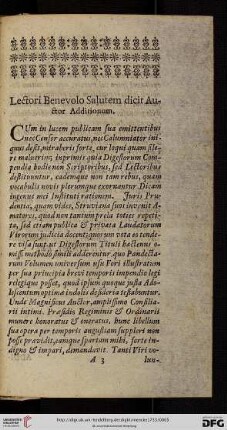 Lectori Benevolo Salutem dicit Au-
ctor Additionum.
CUm in lucem publicam sua emittentibus
nec Censor accuratus, nec Calumniator ini-
quus desit, miraberis forte, cur loqui quam sile-
re maluerim; inprimis quia Digestorum Com-
pendia hodienon Scriptoribus, sed Lectoribus
destituuntur, eademque non tam rebus, quam
vocabulis novis plerumque exornentur. Dicam
ingenue mei instituti rationem. Juris Pru-
dentia, quam videt, Struviana sunt invenit A-
matores, quod non tantum prelo toties repeti-
to, sed etiam publica & privata Laudatorum
Virorum judicia docent; quos vero eo tende-
re visa sunt, ut Digestorum Tituli hactenus o-
missi methodo simili adderentur, quo Pandecta-
rum Volumen universum usu Fori illustratum
per sua principia brevi temporis impendio legi
relegique posset, quod ipsum quoque justa Ado-
lescentum optima indolis desideria testabantur.
Unde Magnificus Auctor, amplissimo Consilia-
rii intimi, Præsidis Regiminis & Ordinarii
munere honoratus & oneratus, hunc libellum
sua opera per temporis angustiam suppleri non
posse prævidit, eamque spartam mihi, forte in-
digno & impari, demandavit. Tanti Viri vo-
A 3
lun-
http://digi.ub.uni-heidelberg.de/diglit/
DFG